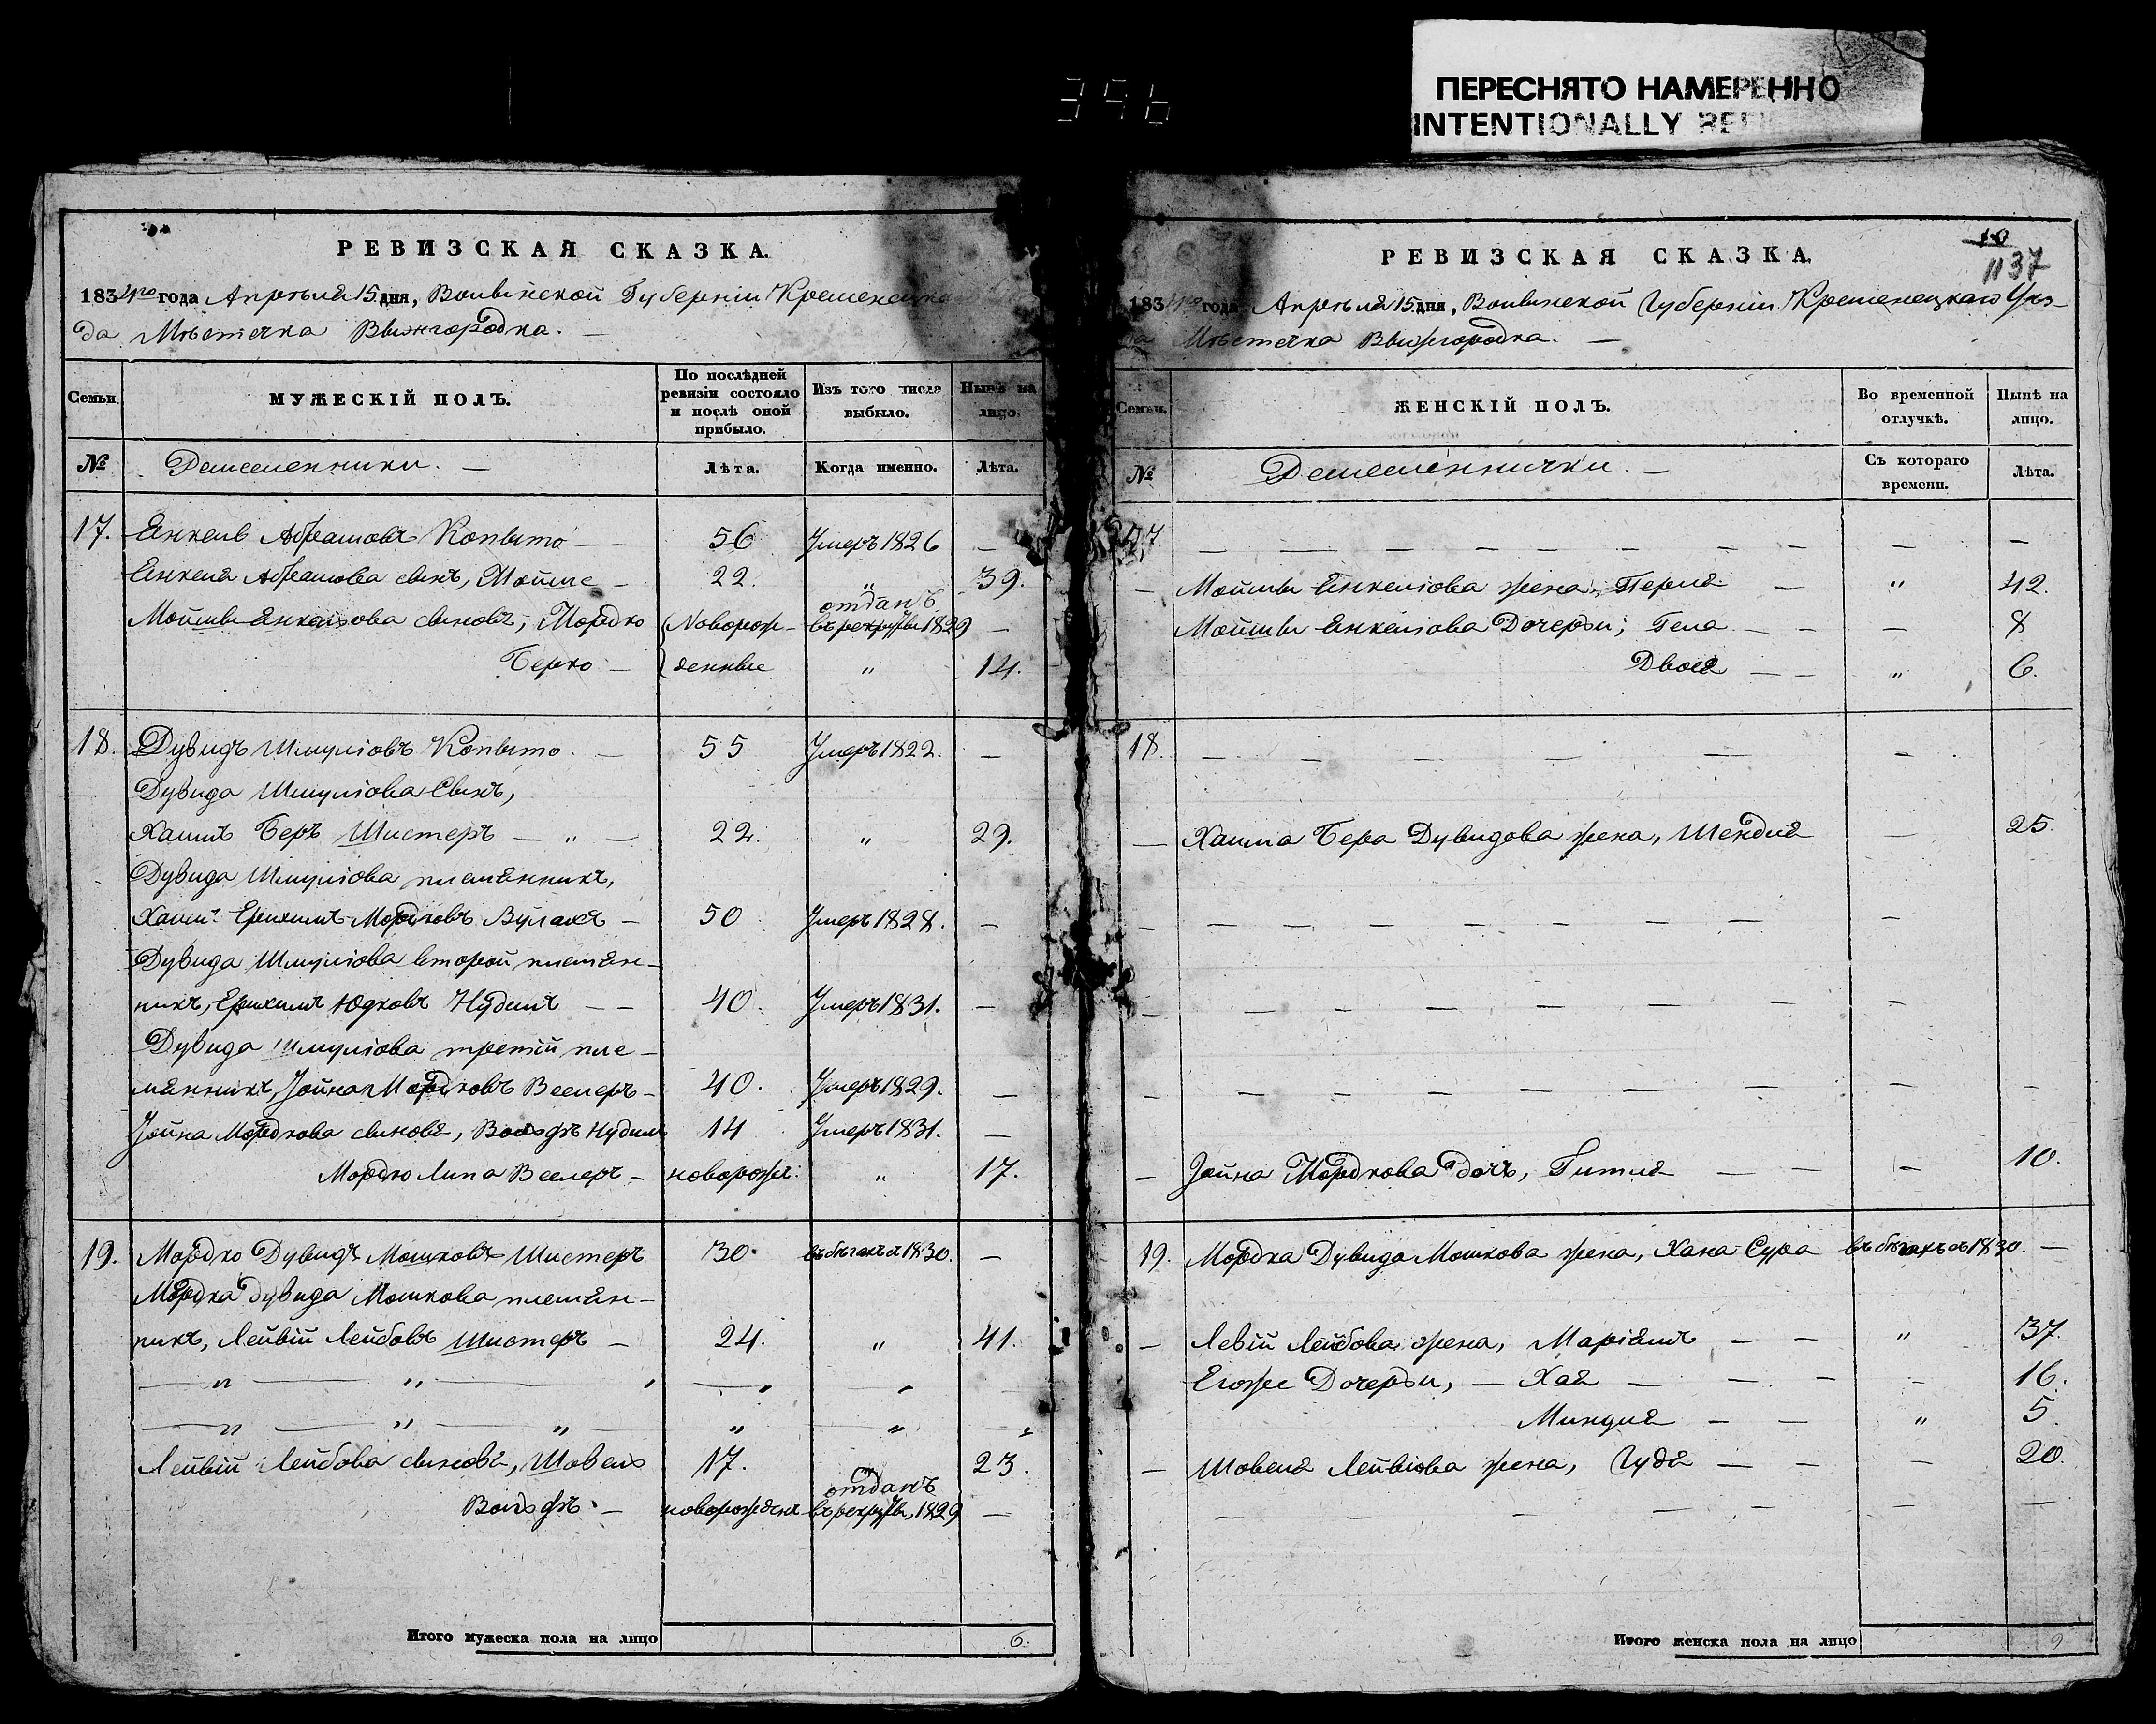 396
ПЕРЕСНЯТО НАМЕРЕННО
INTENTIONALLY
РЕВИЗСКАЯ СКАЗКА.
1834го года Апрѣля 15 дня, Волынской Губерніи Кременецка
да Мѣстечка Вышгородка. —
Семьи. МУЖЕСКІЙ ПОЛЪ. По послѣдней ревизіи состояло и послѣ оной прибыло. Изъ того числа выбыло. Нынѣ на лицо.
№ Лѣта. Когда именно. Лѣта.
17. Янкель Абрамовъ Копыто — 56 Умеръ 1826 —
Янкеля Абрамова сынъ, Мойше — 22. „ 39.
Мойшы Янкельова сыновъ, Мордко (Новорож- отданъ въ рекруты 1829 —
Берко — денные „ 14.
18. Дувидъ Шмулiовъ Копыто. — 55 Умеръ 1822. —
Дувида Шмулiова Сынъ,
Хаимъ Беръ Шистеръ — „ — 22. „ 29.
Дувида Шмулiова племянникъ,
Хаим Ерихимъ Мордковъ — 50 Умеръ 1828. —
Дувида Шмулiова второй племян-
никъ, Ерихимъ Юдковъ Нудимъ — — 40. Умеръ 1831. —
Дувида Шмулiова третій пле-
мянникъ, Iойна Мордковъ Веелеръ — 40. Умеръ 1829. —
Iойна Мордкова сыновя, Вольфъ Нудимъ 14 Умеръ 1831. —
Мордко Липа Веелеръ — новорож. „ 17.
19. Мордко Дувидъ Мошковъ Шистеръ 30. въ бѣгахъ съ 1830. —
Мордка Дувида Мошкова племян-
никъ, Лейвій Лейбовъ Шистеръ — 24. „ 41.
— „ — „ — „ — „ „ —
— „ — „ — „ „ — „ — „
Лейвій Лейбова сыновя, Шовель 17. 23.
Вольфъ. — новорожденъ отданъ въ рекруты, 1829 —
Итого мужеска пола на лицо 6.
РЕВИЗСКАЯ СКАЗКА.
10
1137
1834го года Апрѣля 15 дня, Волынской Губерніи Кременецкаго Уѣз-
да Мѣстечка Вышгородка. —
Семьи. ЖЕНСКІЙ ПОЛЪ. Во временной отлучкѣ. Нынѣ на лицо.
№ Съ котораго времени. Лѣта.
17 — — — — — — — — — —
— Мойшы Янкелiова жена, Перля — „ 42.
Мойшы Янкелiова Дочеры; Гела — — — 8
Двося — — „ 6.
18. — — — — — — —
— Хаима Бера Дувидова жена, Шендля — 25.
— — — — — — — — —
— — — — — — — — —
— — — — — — — — — —
— Iойна Мордкова дочъ, Гитля — — — 10.
19. Мордка Дувида Мошкова жена, Хана Сура въ бѣгахъ съ 1830. —
— Левій Лейбова жена, Маріямъ — — „ 37.
Егоже Дочеры, — Хая — — — — 16.
Миндля — — „ 5.
— Шовеля Лейвiова жена, Гудя — — — 20.
— — — — — —
Итого женска пола на лицо 9